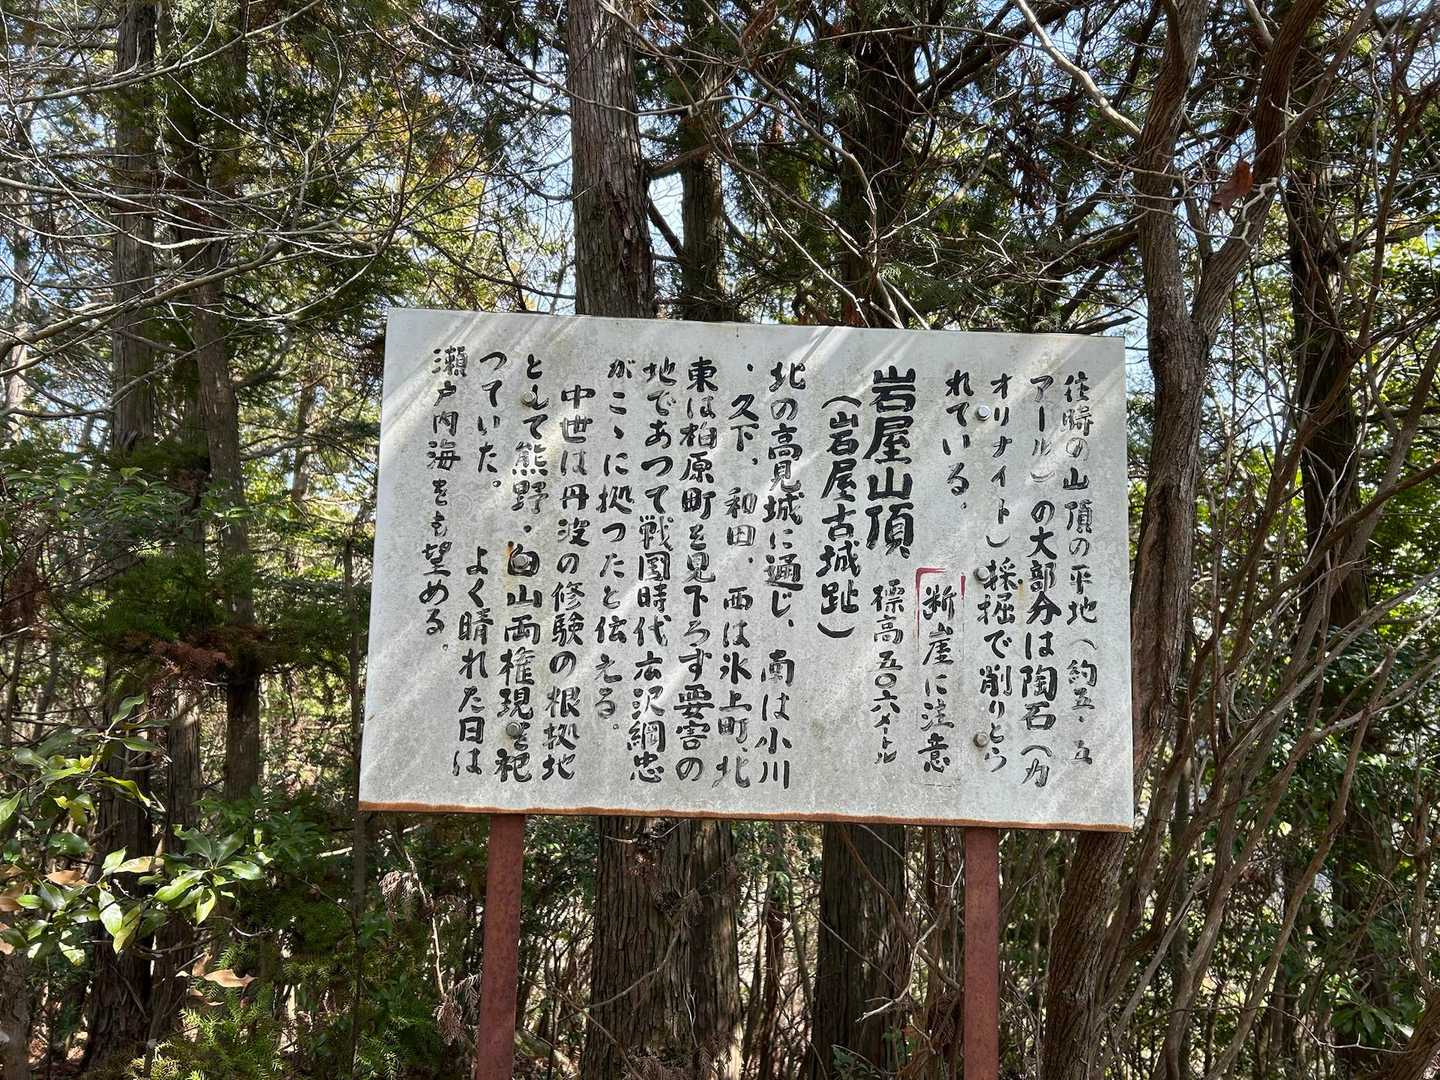 往時の山頂の平地（約五・五
アール）の大部分は陶石（カ
オリナイト）採掘で削りとら
れている。
断崖に注意
岩屋山頂 標高五〇六メートル
（岩屋古城趾）
北の高見城に通じ、南は小川
、久下、和田、西は氷上町、北
東は柏原町を見下ろす要害の
地であつて戦国時代広沢綱忠
がこゝに拠つたと伝える。
中世は丹波の修験の根拠地
として熊野・白山両権現を祀
つていた。 よく晴れた日は
瀬戸内海をも望める。